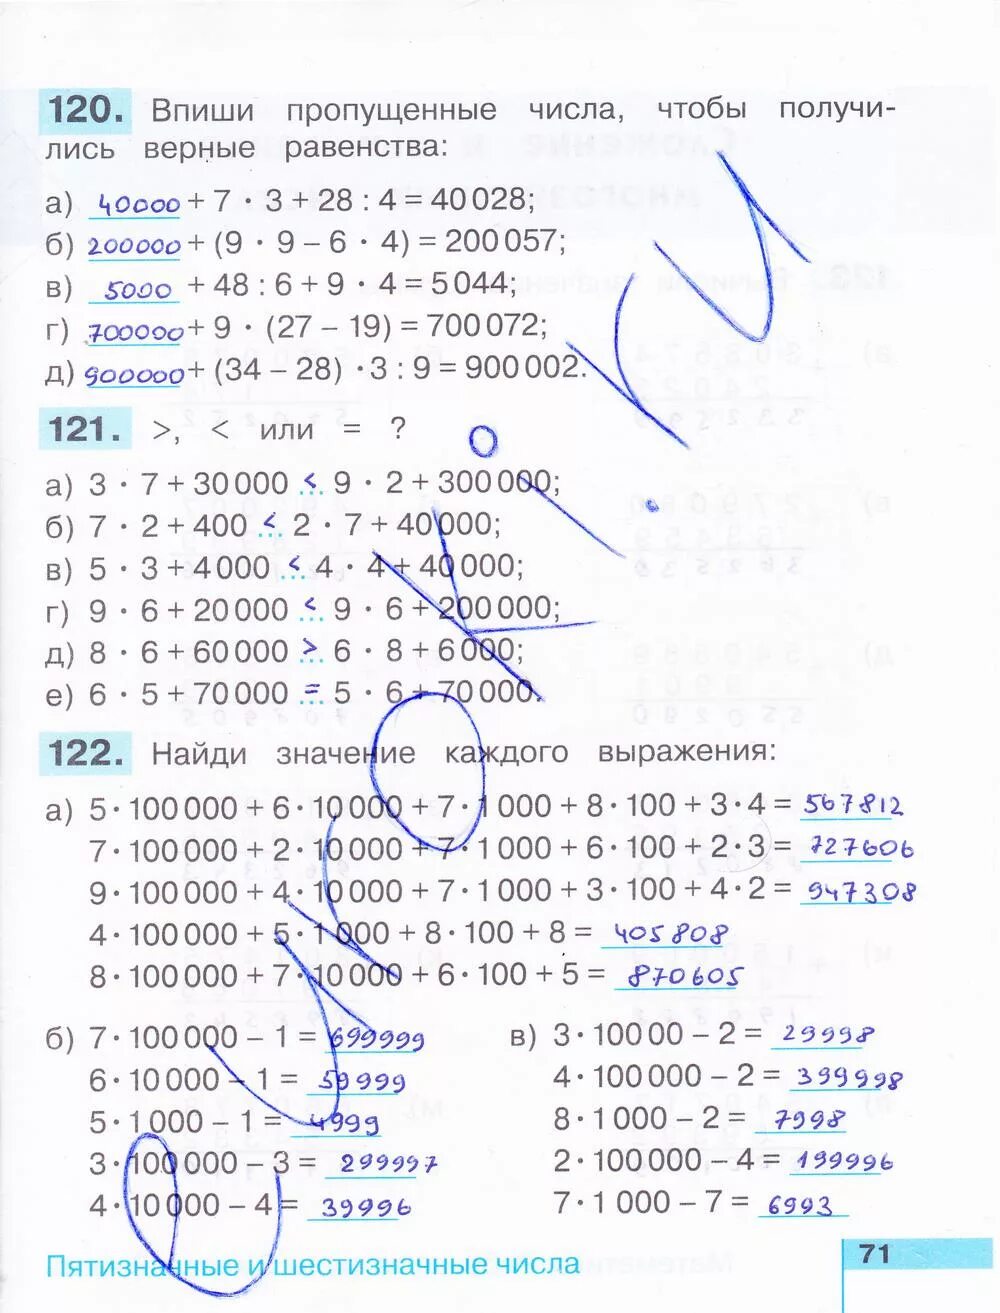 120. Впиши пропущенные числа, чтобы получи-
лись верные равенства:
а) 40000 + 7 · 3 + 28 : 4 = 40 028;
б) 200000 + (9 · 9 – 6 · 4) = 200 057;
в) 5000 + 48 : 6 + 9 · 4 = 5 044;
г) 700000 + 9 · (27 – 19) = 700 072;
д) 900000 + (34 – 28) · 3 : 9 = 900 002.
121. >, < или = ?
а) 3 · 7 + 30 000 < 9 · 2 + 300 000;
б) 7 · 2 + 400 < 2 · 7 + 40 000;
в) 5 · 3 + 4 000 < 4 · 4 + 40 000;
г) 9 · 6 + 20 000 < 9 · 6 + 200 000;
д) 8 · 6 + 60 000 > 6 · 8 + 6 000;
е) 6 · 5 + 70 000 = 5 · 6 + 70 000.
122. Найди значение каждого выражения:
а) 5 · 100 000 + 6 · 10 000 + 7 · 1 000 + 8 · 100 + 3 · 4 = 567812
7 · 100 000 + 2 · 10 000 + 7 · 1 000 + 6 · 100 + 2 · 3 = 727606
9 · 100 000 + 4 · 10 000 + 7 · 1 000 + 3 · 100 + 4 · 2 = 947308
4 · 100 000 + 5 · 1 000 + 8 · 100 + 8 = 405808
8 · 100 000 + 7 · 10 000 + 6 · 100 + 5 = 870605
б) 7 · 100 000 – 1 = 699999
6 · 10 000 – 1 = 59999
5 · 1 000 – 1 = 4999
3 · 100 000 – 3 = 299997
4 · 10 000 – 4 = 39996
в) 3 · 10 000 – 2 = 29998
4 · 100 000 – 2 = 399998
8 · 1 000 – 2 = 7998
2 · 100 000 – 4 = 199996
7 · 1 000 – 7 = 6993
Пятизначные и шестизначные числа
71